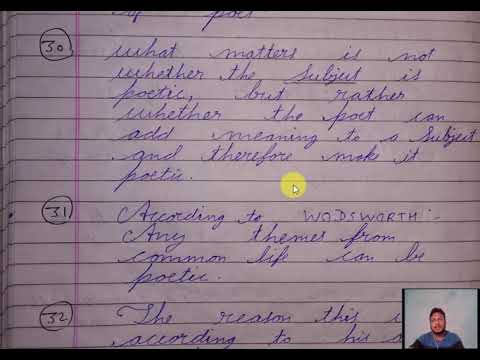 of poet
30) what matters is not
whether the subject is
poetic, but rather
whether the poet can
add meaning to a subject
and therefore make it
poetic.
31) According to WODSWORTH :-
Any themes from
common life can be
poetic.
32) The reason this
according to his